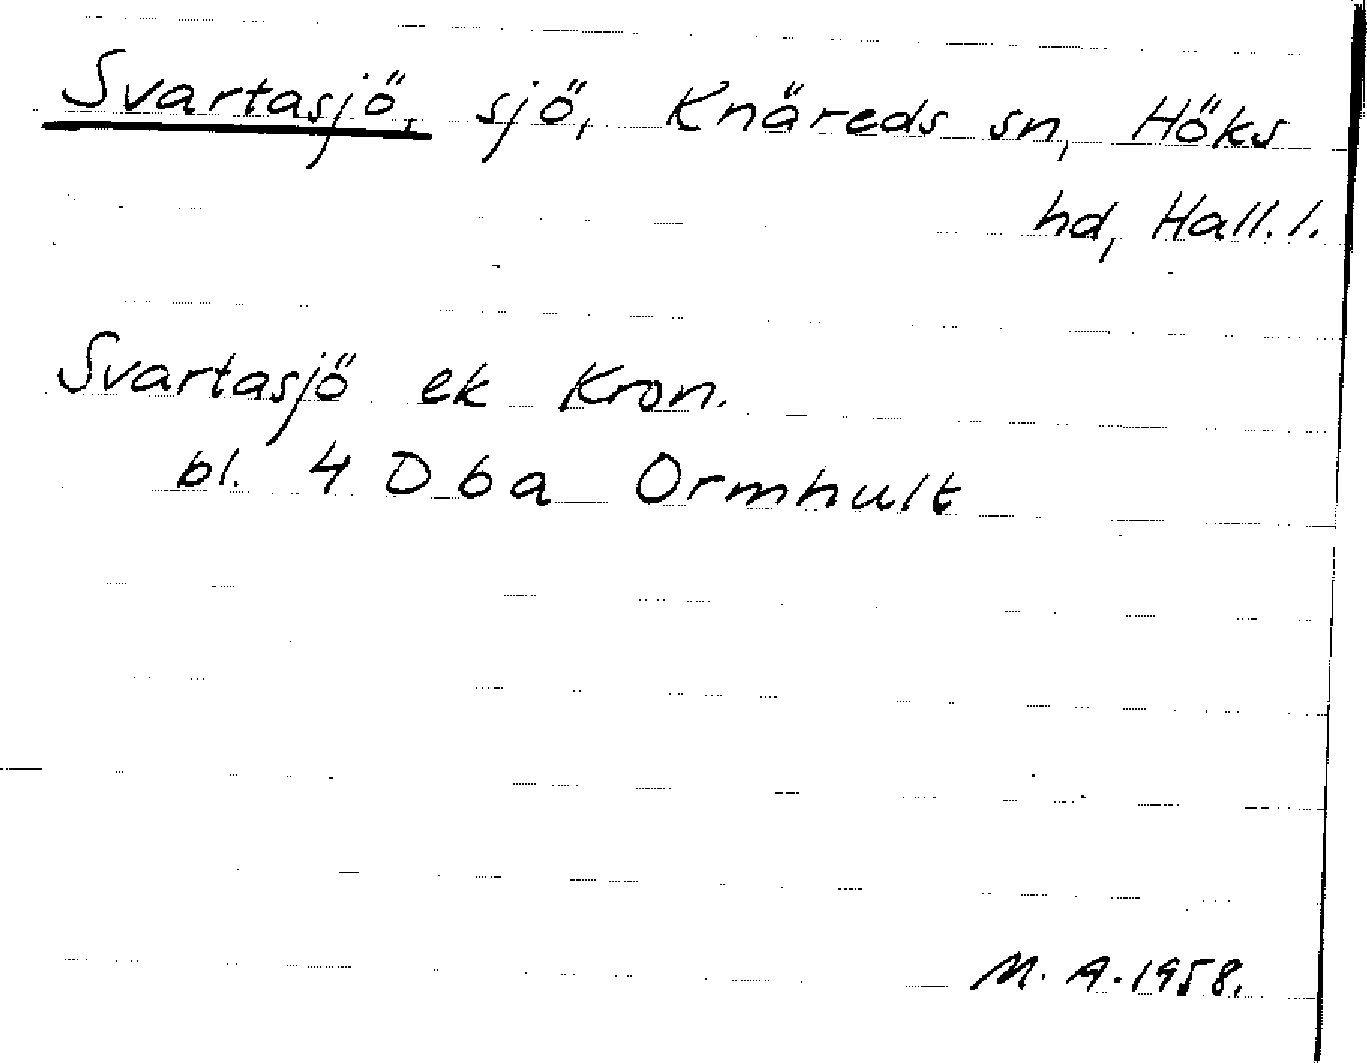 Svartasjö, sjö, Knäreds sn, Höks
hd, Hall. l.
Svartasjö ek Kron.
bl. 4 D 6 a Ormhult
M. A. 1958.